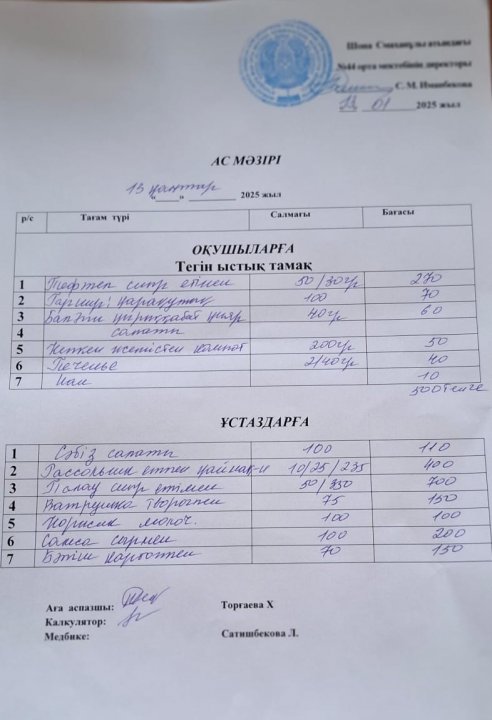 Шона Смаханұлы атындағы
№44 орта мектебінің директоры
С. М. Иманбекова
13 01 2025 жыл
АС МӘЗІРІ
13 қаңтар 2025 жыл
р/с Тағам түрі Салмағы Бағасы
ОҚУШЫЛАРҒА
Тегін ыстық тамақ
1 Тефтел сиыр етінен 50/30гр 270
2 Гарнир: қарақұмық 100 70
3 Балғын қырыққабат қияр 40гр 60
4 салаты
5 Кепкен жемістен компот 200гр 50
6 Печенье 2/40гр 40
7 Нан 10
500 теңге
ҰСТАЗДАРҒА
1 Сәбіз салаты 100 110
2 Рассольник етпен қаймақ-н 10/25/235 400
3 Палау сиыр етімен 50/350 700
4 Ватрушка творогпен 75 150
5 Корисик молоч. 100 100
6 Самса сырмен 100 200
7 Бәліш картоппен 70 150
Аға аспазшы: Торғаева Х
Калкулятор:
Медбике: Сатишбекова Л.